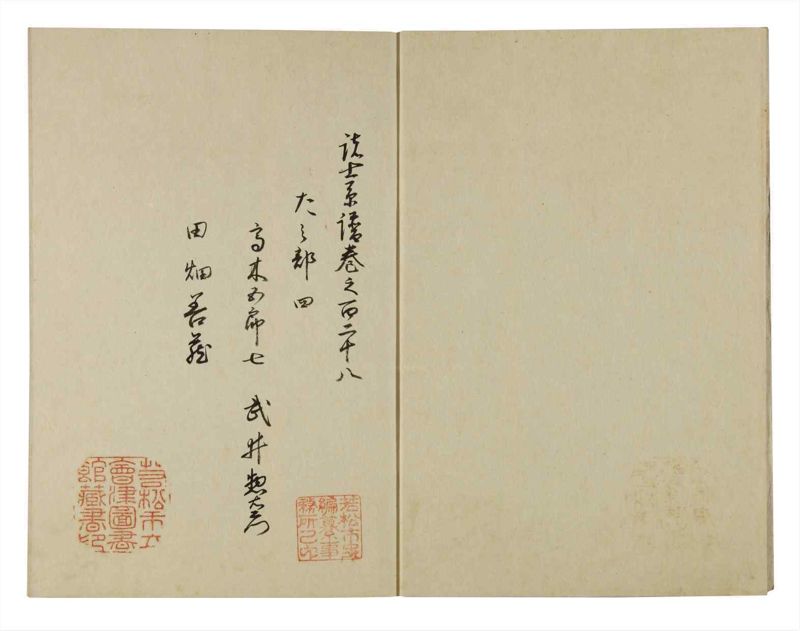 諸士系譜巻之百二十八
たノ部 四
高木五郎七 武井惣右衛門
田畑善蔵
若松市立
會津圖書
館藏書印
若松市史
編纂事
務所之印